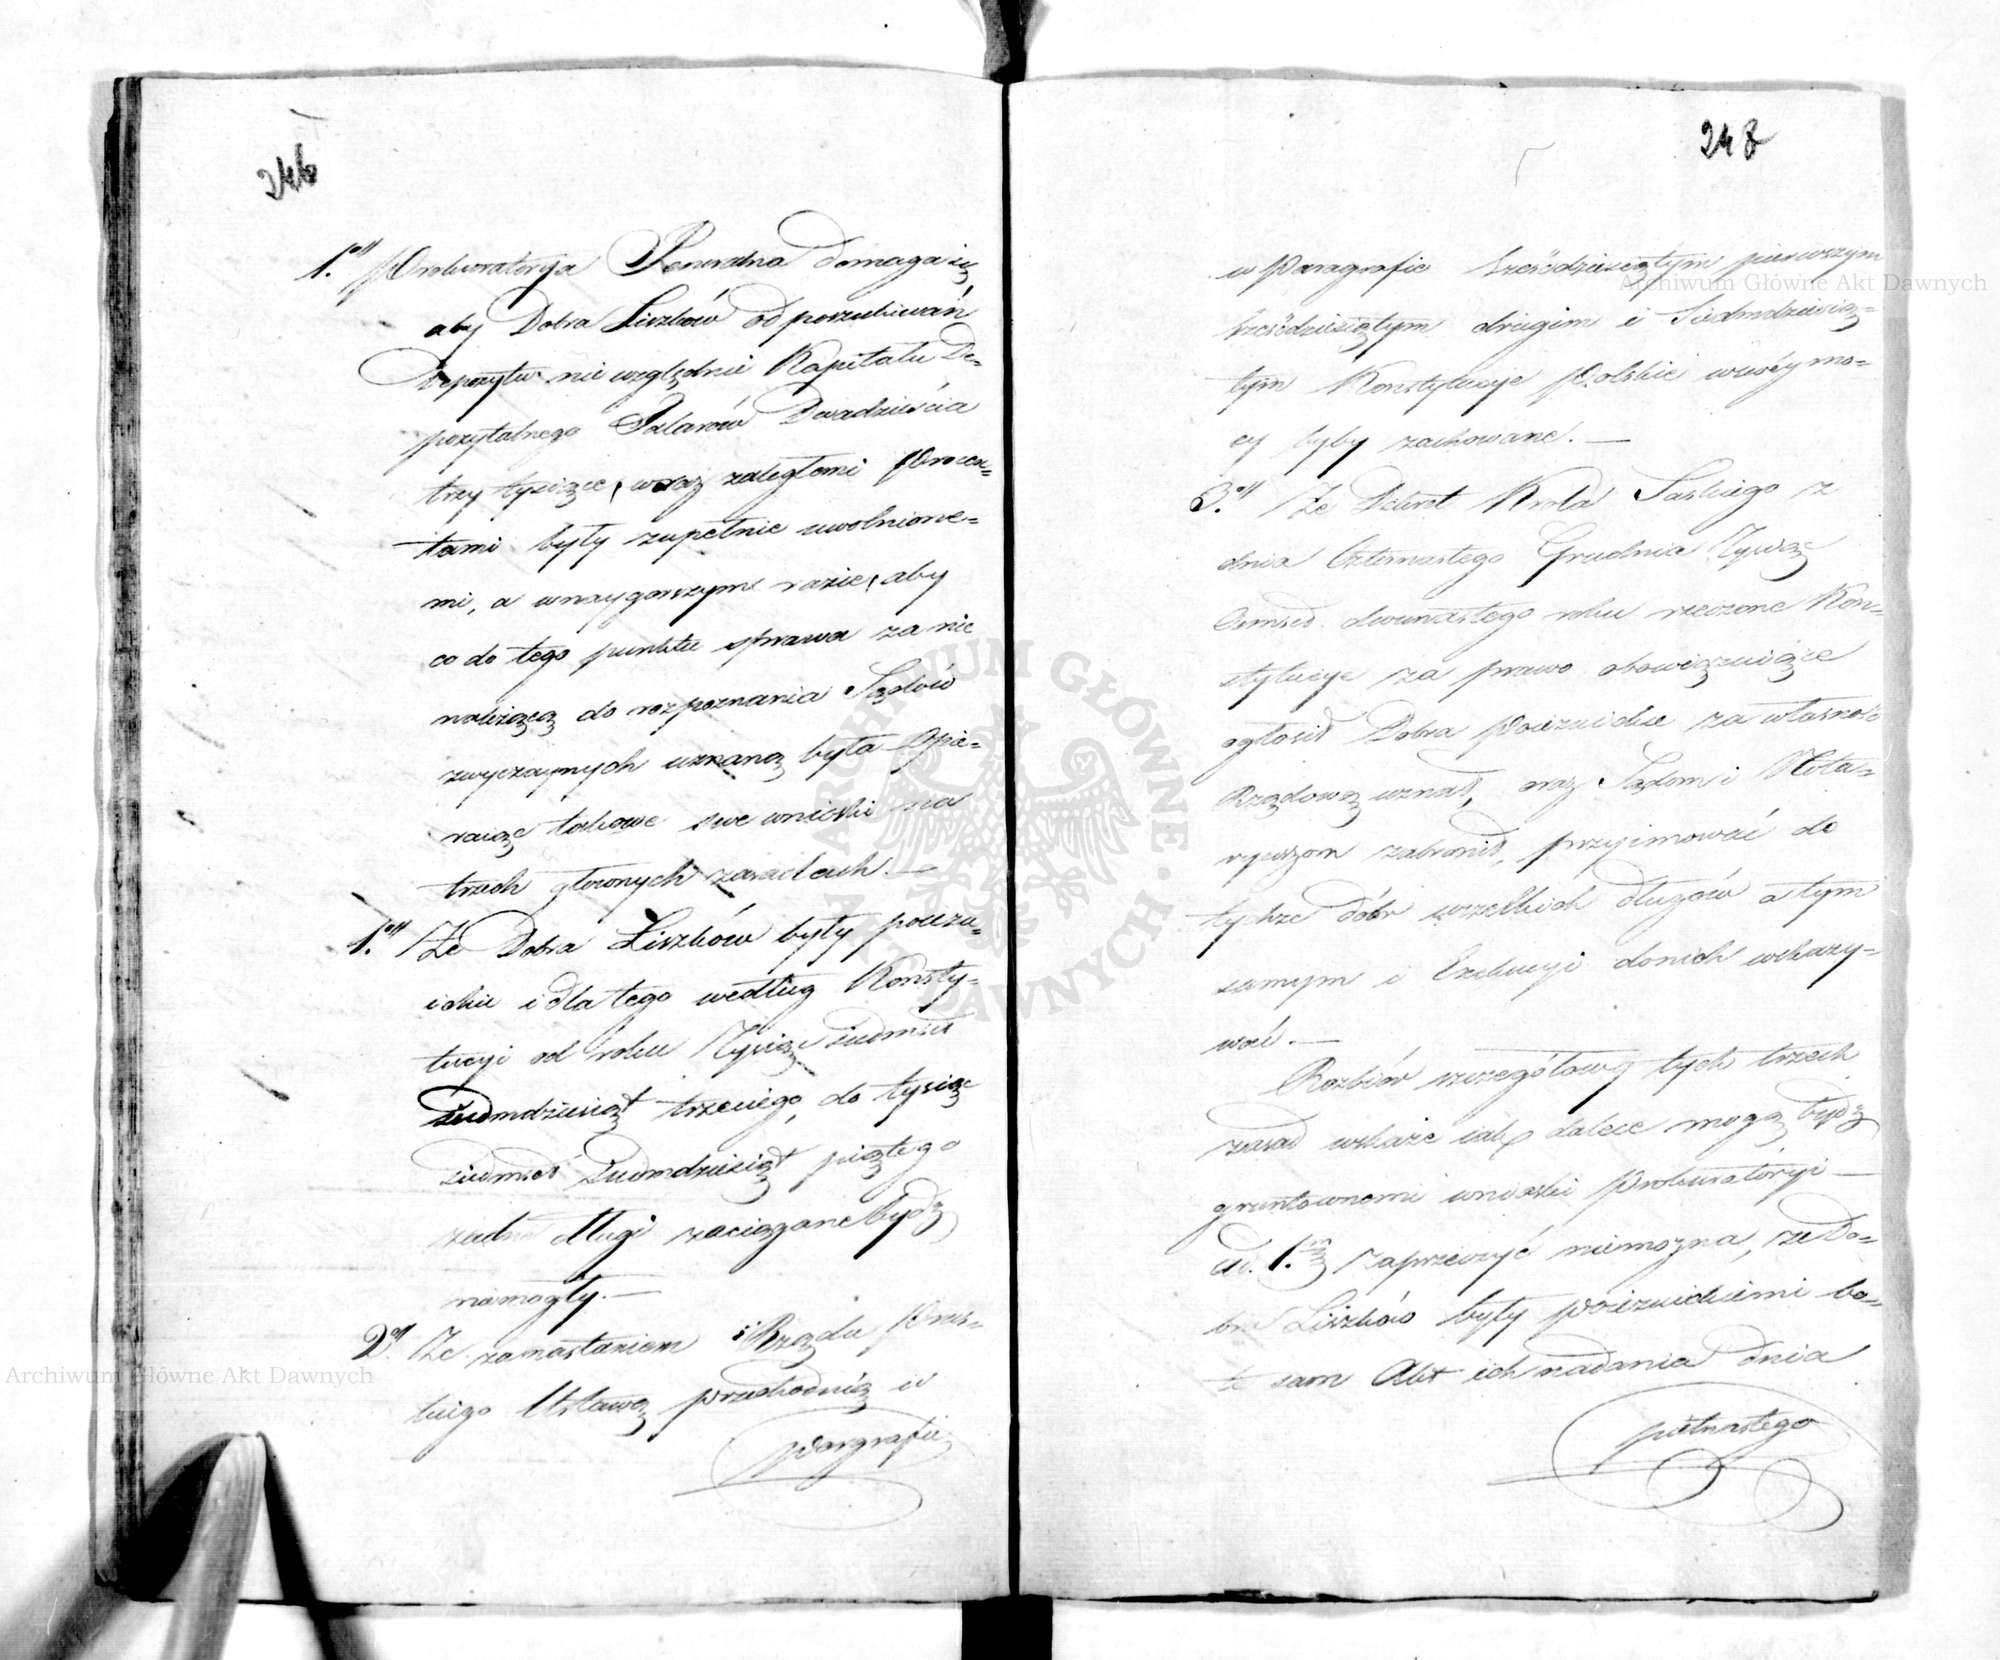 246
1.o Prokuratorya Generalna domaga się
aby Dobra Liszków od poszukiwań
Depozytu nie względnie Kapitału De=
pozytalnego Talarów Dwadzieścia
trzy tysiące, wraz zaległemi Procen=
tami były zupełnie uwolnione=
mi, a w naygorszym razie, aby
co do tego punktu sprawa za nie
należącą do rozpoznania Sądów
zwyczaynych uznaną była Opie=
raiąc takowe swe wnioski na
trzech głównych zasadach. —
1.o Że Dobra Liszków były poiezu=
ickie i dla tego według Konsty=
tucyi od roku Tysiąc siedmset
siedmdziesiąt trzeciego, do tysiąc
siedmset siedmdziesiąt piątego
żadne długi zaciągane bydź
niemogły. —
2.o Że za nastaniem Rządu Prus=
kiego Ustawą przechodnią w
Paragrafie
248
w Paragrafie sześćdziesiątym pierwszym
sześćdziesiątym drugim i Siedmdziesią=
tym Konstytucye Polskie w swéy mo=
cy były zachowane. —
3.o Że Dekret Króla Saskiego z
dnia Czternastego Grudnia Tysiąc
Osmset dwunastego roku rzeczone Kon=
stytucye za prawo obowiązuiące
ogłosił Dobra Poiezuickie za własność
Rządową uznał, oraz Sądom i Nota=
ryuszom zabronił, przyimować do
tychże dóbr wszelkich długów a tym
samym i Exekucyi do nich wskazy=
wać. —
Rozbiór szczegółowy tych trzech
zasad wskaże iak dalece mogą bydź
gruntownemi wnioski Prokuratoryi —
ad. 1.m Zaprzeczyć niemożna, że Do=
bra Liszków były poiezuickiemi bo=
to sam Akt ich nadania dnia
piętnastego
Archiwum Główne Akt Dawnych
Archiwum Główne Akt Dawnych
ARCHIWUM GŁÓWNE AKT DAWNYCH